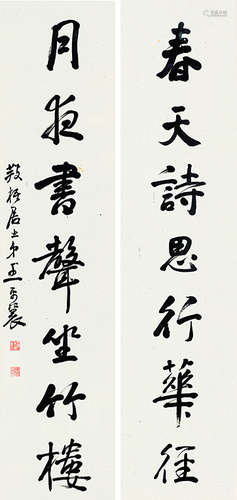 春天詩思行華徑
月夜書聲坐竹樓
居士